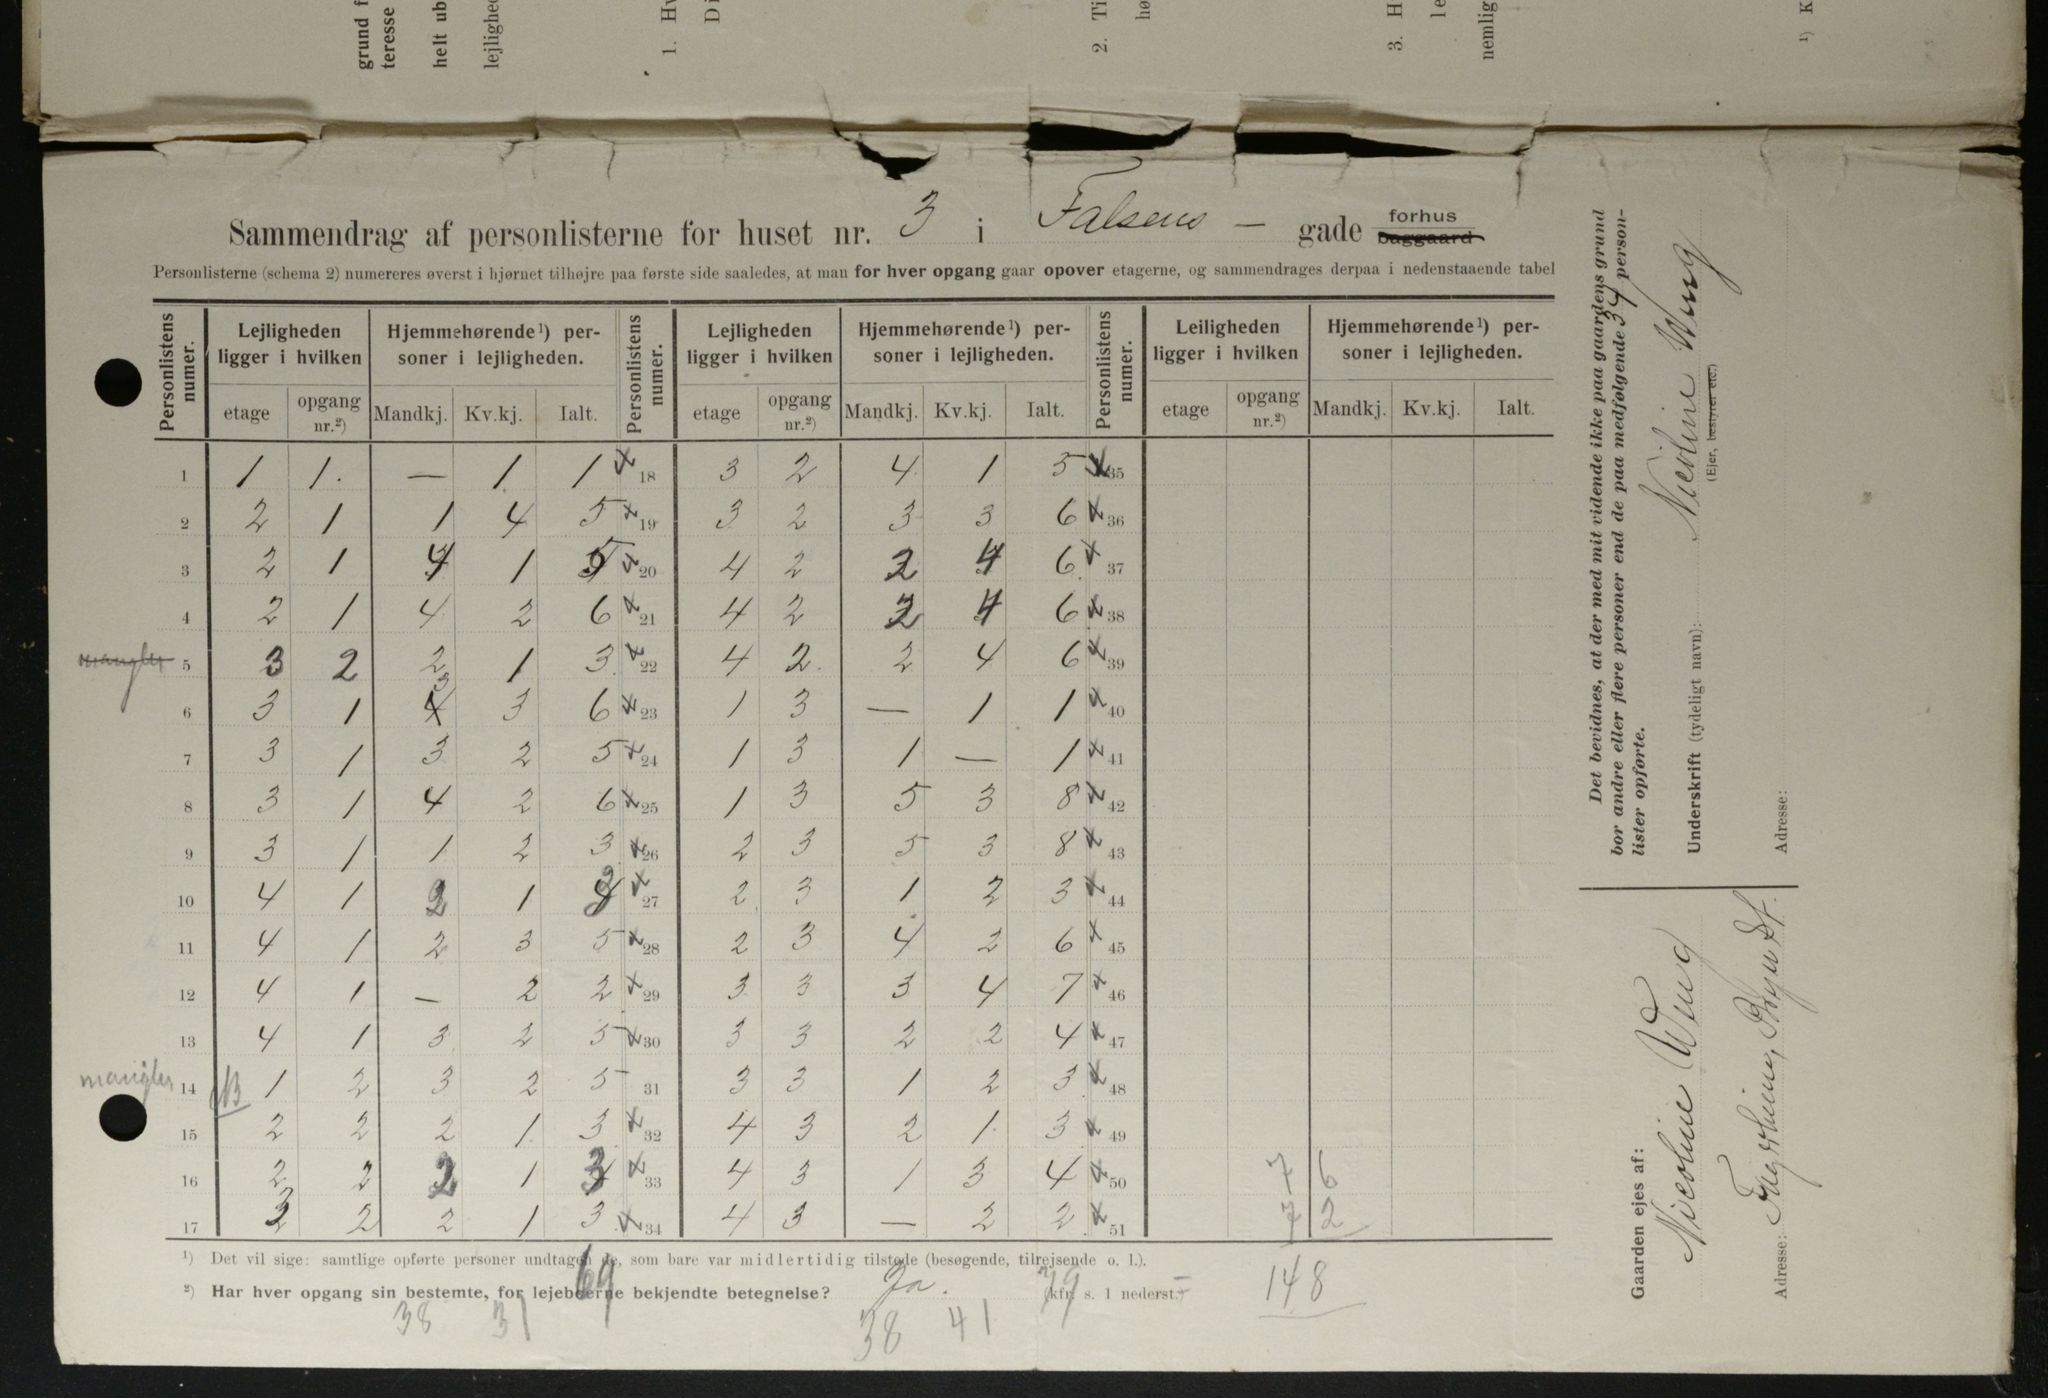 grund f
teresse
helt ub
lejlighed
1. Hv
Di
2. Ti
hø
3. H
le
nemlig
¹) K
Sammendrag af personlisterne for huset nr. 3 i Falsens — gade forhus baggaard
Personlisterne (schema 2) numereres øverst i hjørnet tilhøjre paa første side saaledes, at man for hver opgang gaar opover etagerne, og sammendrages derpaa i nedenstaaende tabel
Personlistens numer. | Lejligheden ligger i hvilken | Hjemmehørende¹) personer i lejligheden. | Personlistens numer. | Lejligheden ligger i hvilken | Hjemmehørende¹) personer i lejligheden. | Personlistens numer. | Leiligheden ligger i hvilken | Hjemmehørende¹) personer i lejligheden.
etage | opgang nr.²) | Mandkj. | Kv.kj. | Ialt. | etage | opgang nr.²) | Mandkj. | Kv.kj. | Ialt. | etage | opgang nr.²) | Mandkj. | Kv.kj. | Ialt.
1 | 1 | 1. | — | 1 | 1 | x 18 | 3 | 2 | 4 | 1 | 5 | x 35
2 | 2 | 1 | 1 | 4 | 5 | x 19 | 3 | 2 | 3 | 3 | 6 | x 36
3 | 2 | 1 | 4 | 1 | 5 | x 20 | 4 | 2 | 2 | 4 | 6 | x 37
4 | 2 | 1 | 4 | 2 | 6 | x 21 | 4 | 2 | 2 | 4 | 6 | x 38
mangler 5 | 3 | 2 | 2 | 1 | 3 | x 22 | 4 | 2 | 2 | 4 | 6 | x 39
6 | 3 | 1 | 3 4 | 3 | 6 | x 23 | 1 | 3 | — | 1 | 1 | x 40
7 | 3 | 1 | 3 | 2 | 5 | x 24 | 1 | 3 | 1 | — | 1 | x 41
8 | 3 | 1 | 4 | 2 | 6 | x 25 | 1 | 3 | 5 | 3 | 8 | x 42
9 | 3 | 1 | 1 | 2 | 3 | x 26 | 2 | 3 | 5 | 3 | 8 | x 43
10 | 4 | 1 | 2 | 1 | 3 | x 27 | 2 | 3 | 1 | 2 | 3 | x 44
11 | 4 | 1 | 2 | 3 | 5 | x 28 | 2 | 3 | 4 | 2 | 6 | x 45
12 | 4 | 1 | — | 2 | 2 | x 29 | 3 | 3 | 3 | 4 | 7 | x 46
13 | 4 | 1 | 3 | 2 | 5 | x 30 | 3 | 3 | 2 | 2 | 4 | x 47
mangler 14 | 1 | 2 | 3 | 2 | 5 | 31 | 3 | 3 | 1 | 2 | 3 | x 48
15 | 2 | 2 | 2 | 1 | 3 | x 32 | 4 | 3 | 2 | 1 | 3 | x 49
16 | 2 | 2 | 2 | 1 | 3 | x 33 | 4 | 3 | 1 | 3 | 4 | x 50 | 7 | 6
17 | 3 | 2 | 2 | 1 | 3 | x 34 | 4 | 3 | — | 2 | 2 | x 51 | 7 | 2
¹) Det vil sige: samtlige opførte personer undtagen de, som bare var midlertidig tilstede (besøgende, tilrejsende o. l.).
²) Har hver opgang sin bestemte, for lejeboerne bekjendte betegnelse? Ja. (kfr. s. 1 nederst.)
69 79 148
38 31 38 41
Det bevidnes, at der med mit vidende ikke paa gaardens grund
bor andre eller flere personer end de paa medfølgende 34 person-
lister opførte.
Underskrift (tydeligt navn): Nicoline Wing
(Ejer, bestyrer etc.)
Adresse:
Gaarden ejes af:
Nicoline Wing
Adresse: